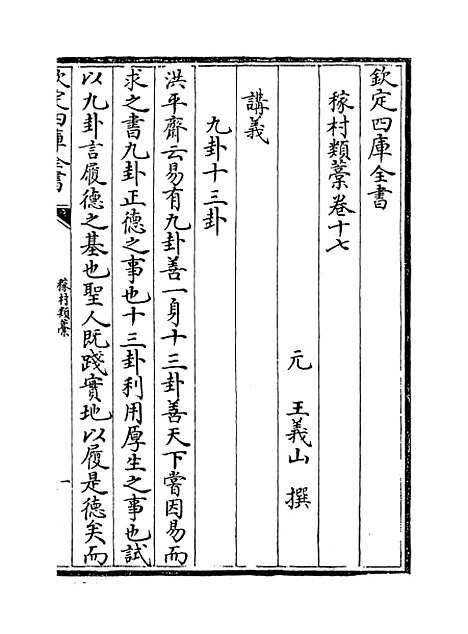 欽定四庫全書
稼村類藁卷十七
元 王義山 撰
講義
九卦十三卦
洪平齋云易有九卦善一身十三卦善天下嘗因易而
求之書九卦正德之事也十三卦利用厚生之事也試
以九卦言履德之基也聖人既踐實地以履是德矣而
欽定四庫全書
稼村類藁
一